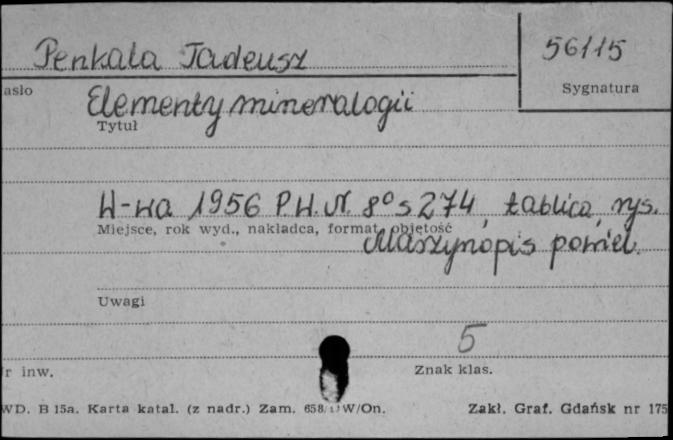 Penkala Tadeusz
56115
asło
Sygnatura
Elementy mineralogii
Tytuł
W-wa 1956 P.W.N. 8° s 274, tablica, rys.
Miejsce, rok wyd., nakładca, format, objętość
Maszynopis powiel.
Uwagi
5
r inw.
Znak klas.
WD. B 15a. Karta katal. (z nadr.) Zam. 658/ W/On.
Zakł. Graf. Gdańsk nr 175